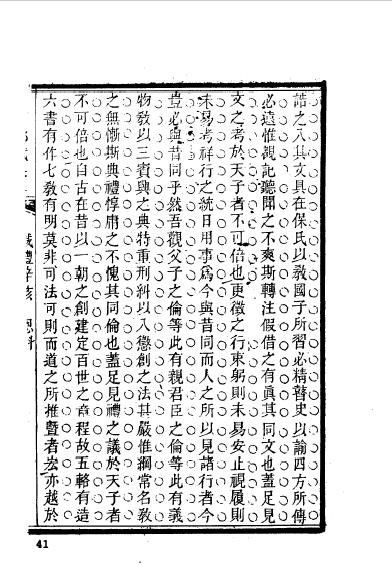 誥之八其文具在保氏以敎國子所習必精瞽史以諭四方所傳
必遠惟覩記聽聞之不爽斯轉注假借之有眞其同文也蓋足見
文之考於天子者不可倍也更徵之行東躬則未易安止視履則
未易考祥行之統日用事爲今與昔同而人之所以見諸行者今
豈必與昔同乎然吾觀父子之倫等此有親君臣之倫等此有義
物敎以三賓興之典特重刑糾以八懲創之法甚嚴惟綱常名敎
之無慚斯典禮惇庸之不愧其同倫也蓋足見禮之議於天子者
不可倍也自古在昔以一朝之創建定百世之章程故五輅有造
六書有作七敎有明莫非可法可則而道之所推暨者宏亦越於
41